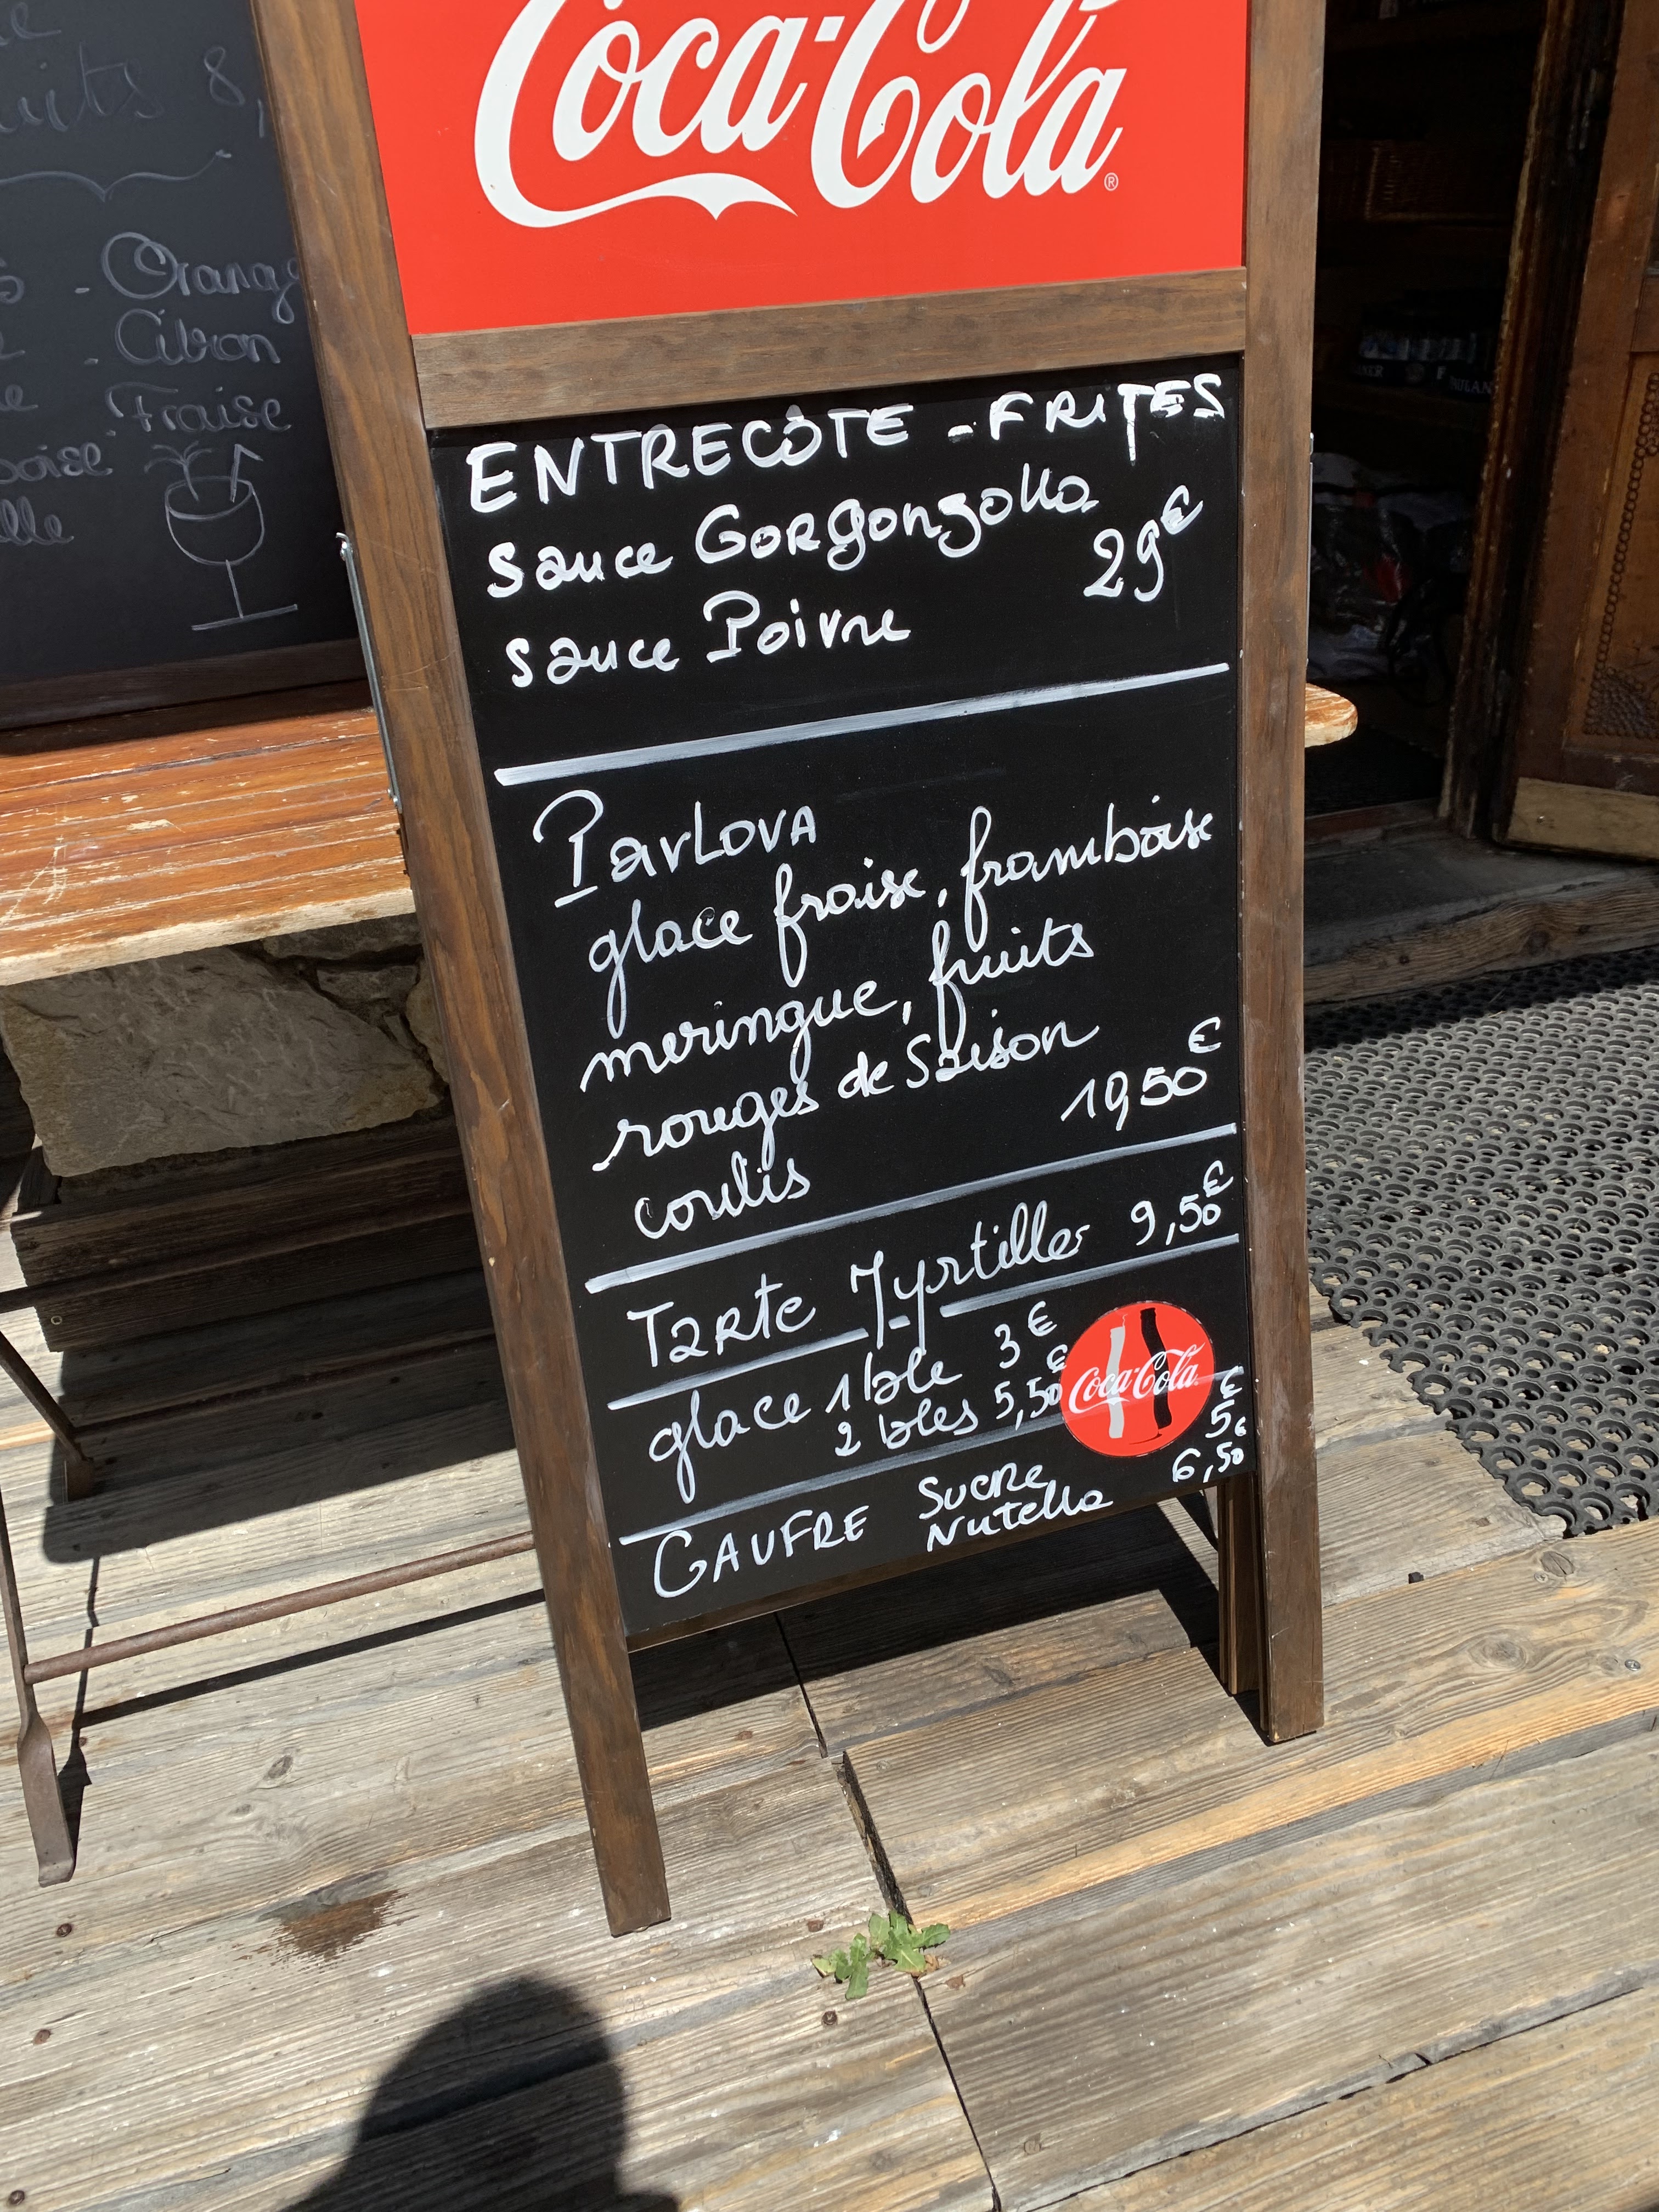 Coca-Cola
®
8,
- Orang
- Citron
Fraise
ENTRECÔTE - FRITES
Sauce Gorgonzolla
29€
Sauce Poivre
Pavlova
glace fraise, framboise
meringue, fruits
rouges de Saison
coulis
10,50€
Tarte Myrtilles 9,50€
glace 1 ble 3€
2 bles 5,50€
Coca-Cola
GAUFRE Sucre 5€
Nutella 6,50€